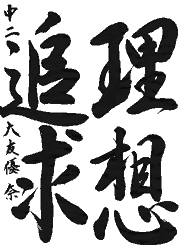 理想
追求
中二 大友優奈